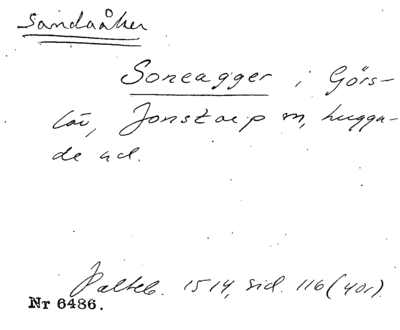 Sandaåker
Soneagger i Görs-
löv, Jonstorp sn, Luggu-
de hd.
Palteb. 1514, sid. 116 (401).
Nr 6486.